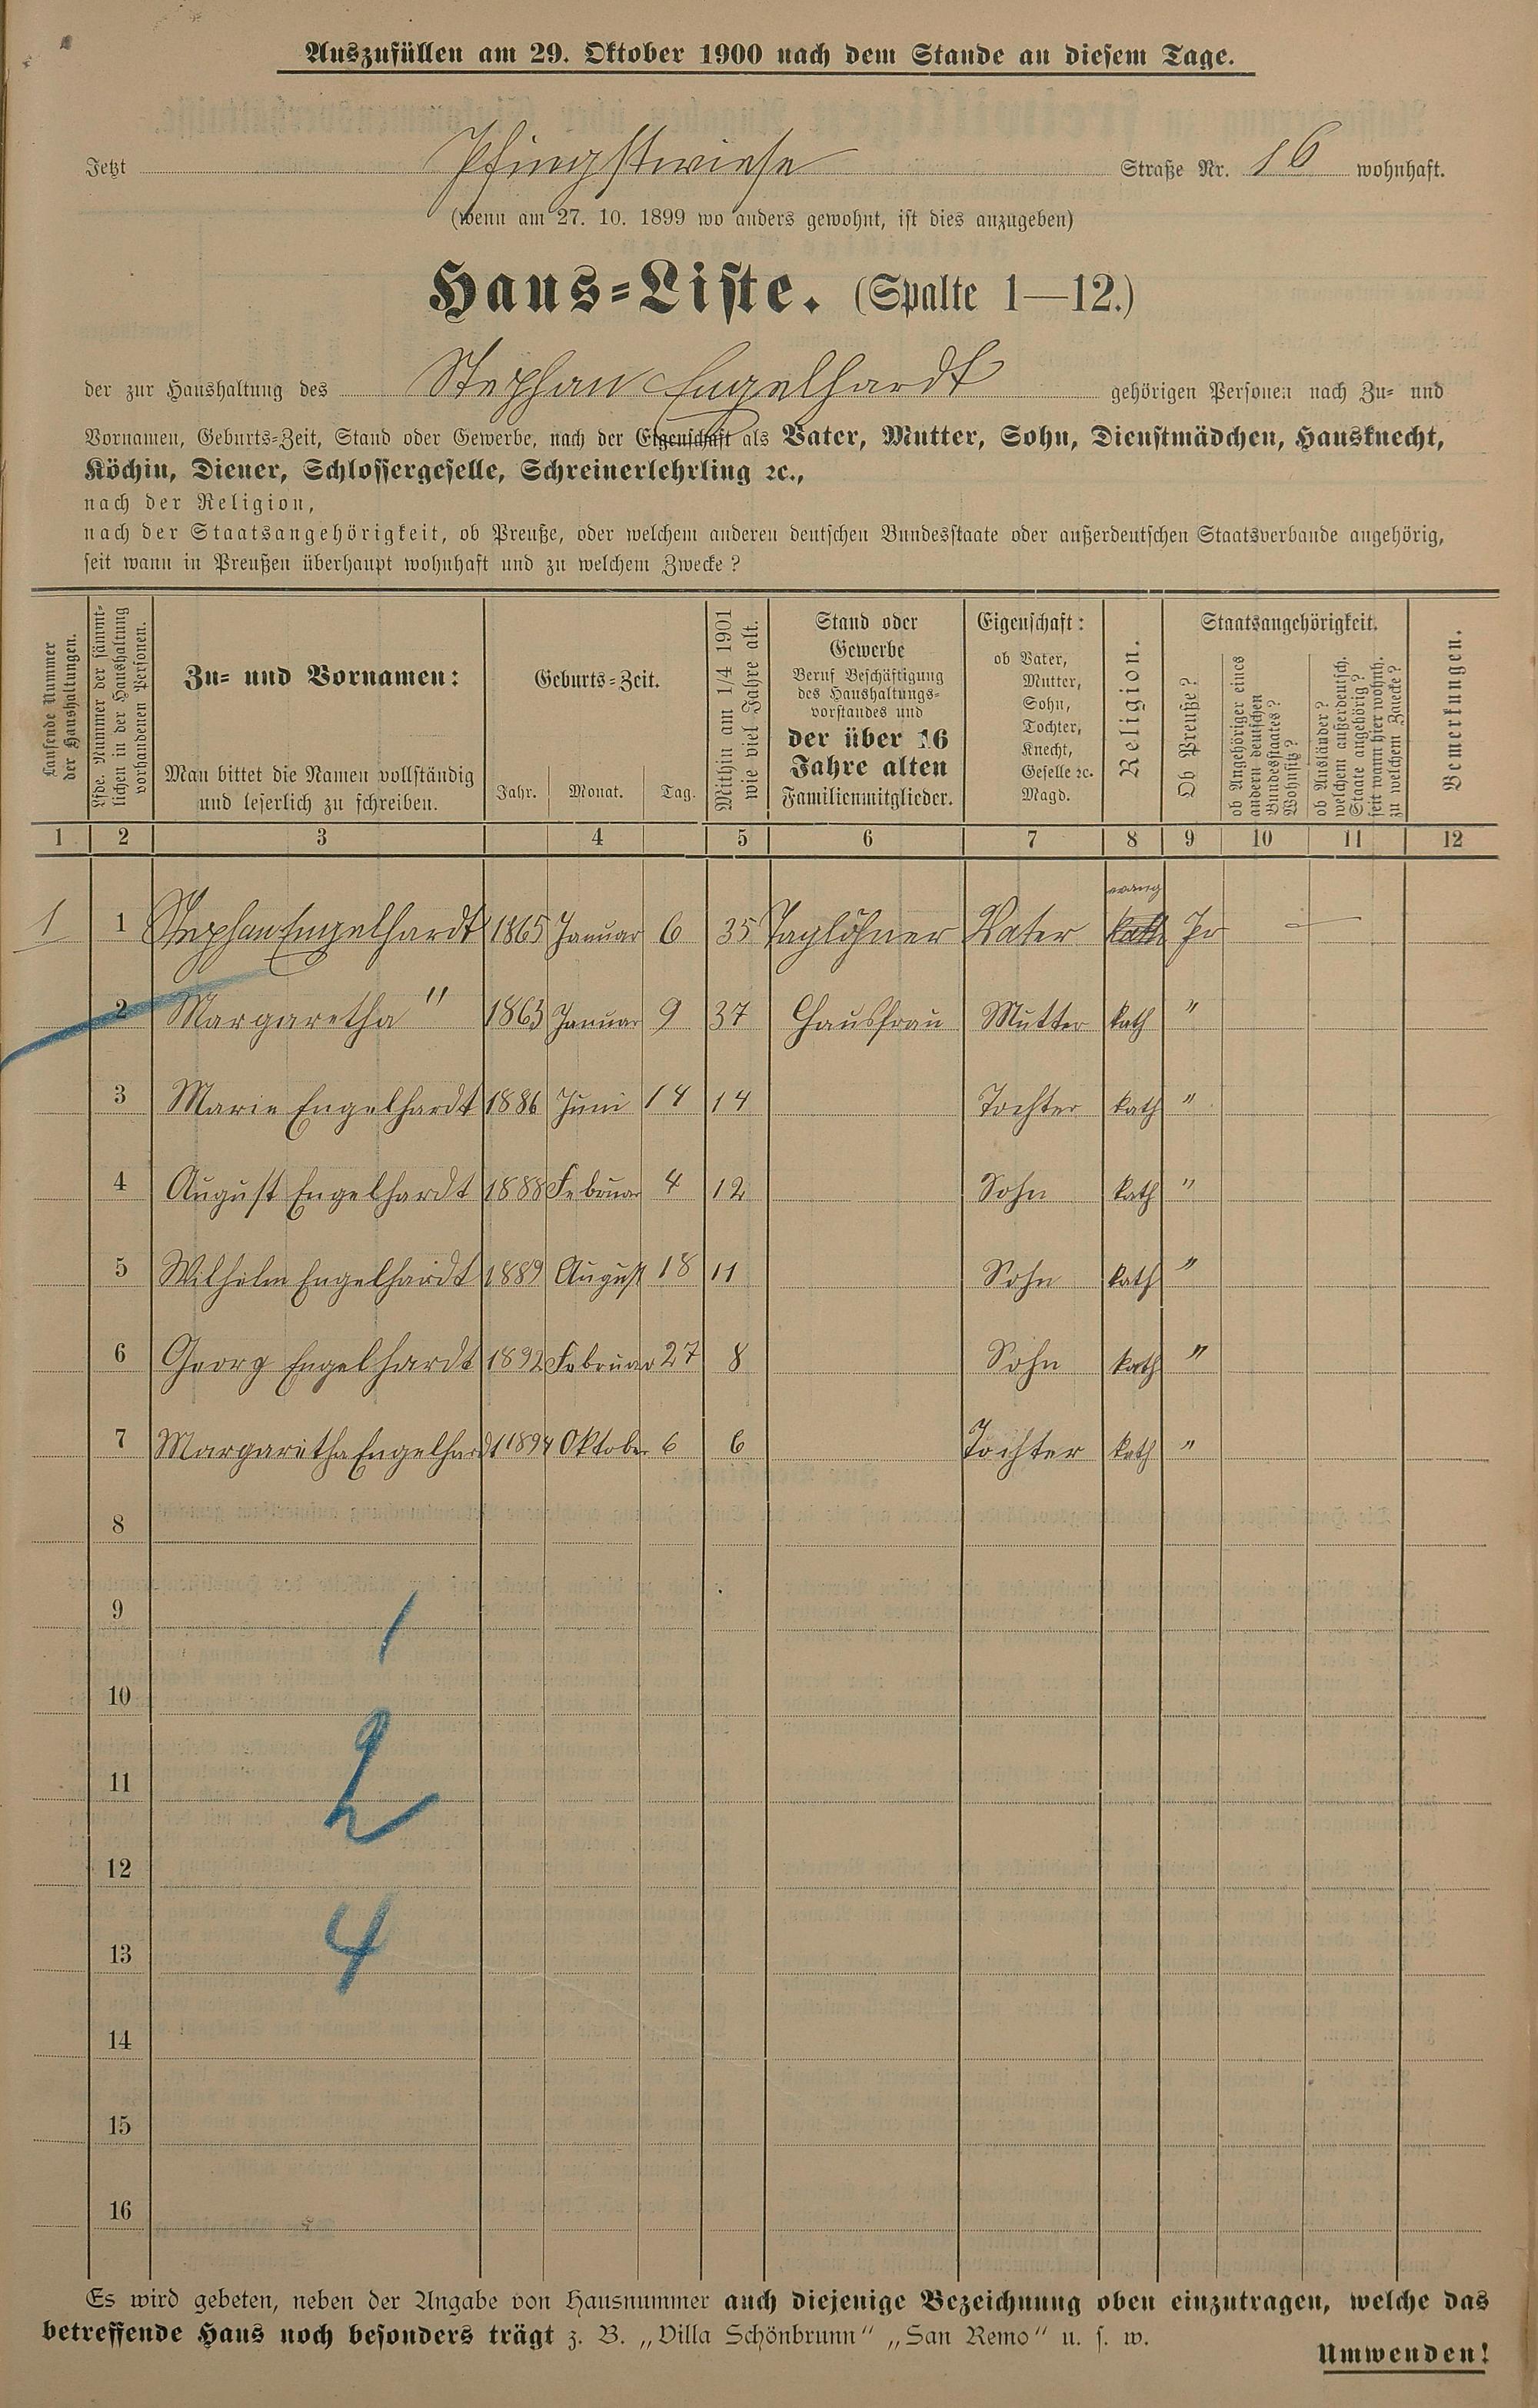 Auszufüllen am 29. Oktober 1900 nach dem Stande an diesem Tage.
Jetzt Pfingstwiese Straße Nr. 16 wohnhaft.
(wenn am 27. 10. 1899 wo anders gewohnt, ist dies anzugeben)
Haus-Liste. (Spalte 1—12.)
der zur Haushaltung des Stephan Engelhardt gehörigen Personen nach Zu- und
Vornamen, Geburts-Zeit, Stand oder Gewerbe, nach der Eigenschaft als Vater, Mutter, Sohn, Dienstmädchen, Hausknecht,
Köchin, Diener, Schlossergeselle, Schreinerlehrling ꝛc.,
nach der Religion,
nach der Staatsangehörigkeit, ob Preuße, oder welchem anderen deutschen Bundesstaate oder außerdeutschen Staatsverbande angehörig,
seit wann in Preußen überhaupt wohnhaft und zu welchem Zwecke?
Laufende Nummer
der Haushaltungen.
Lfde. Nummer der sämmt-
lichen in der Haushaltung
vorhandenen Personen.
Zu- und Vornamen:
Man bittet die Namen vollständig
und leserlich zu schreiben.
Geburts-Zeit.
Jahr. Monat. Tag.
Mithin am 1/4 1901
wie viel Jahre alt.
Stand oder
Gewerbe
Beruf Beschäftigung
des Haushaltungs-
vorstandes und
der über 16
Jahre alten
Familienmitglieder.
Eigenschaft:
ob Vater,
Mutter,
Sohn,
Tochter,
Knecht,
Geselle ꝛc.
Magd.
Religion.
Staatsangehörigkeit.
Ob Preuße?
ob Angehöriger eines
andern deutschen
Bundesstaates?
Wohnsitz?
ob Ausländer?
welchem außerdeutsch.
Staate angehörig?
seit wann hier wohnh.
zu welchem Zwecke?
Bemerkungen.
1 2 3 4 5 6 7 8 9 10 11 12
evang
1 1 Stephan Engelhardt 1865 Januar 6 35 Taglöhner Vater kath Pr —
2 Margaretha " 1863 Januar 9 37 Hausfrau Mutter kath "
3 Marie Engelhardt 1886 Juni 14 14 Tochter kath "
4 August Engelhardt 1888 Februar 4 12 Sohn kath "
5 Wilhelm Engelhardt 1889 August 18 11 Sohn kath "
6 Georg Engelhardt 1892 Februar 27 8 Sohn kath "
7 Margaretha Engelhardt 1894 Oktober 6 6 Tochter kath "
8
9
1
10
11
2
12
13
4
14
15
16
Es wird gebeten, neben der Angabe von Hausnummer auch diejenige Bezeichnung oben einzutragen, welche das
betreffende Haus noch besonders trägt z. B. „Villa Schönbrunn“ „San Remo“ u. s. w.
Umwenden!